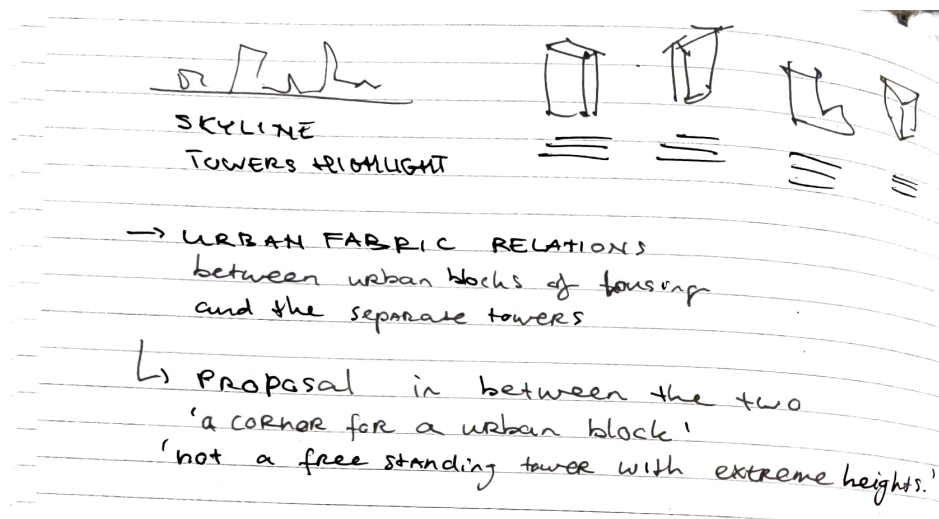 SKYLINE
TOWERS HIGHLIGHT
→ URBAN FABRIC RELATIONS
between urban blocks of housing
and the separate towers
↳ PROPOSAL in between the two
'a corner for a urban block'
'not a free standing tower with extreme heights.'